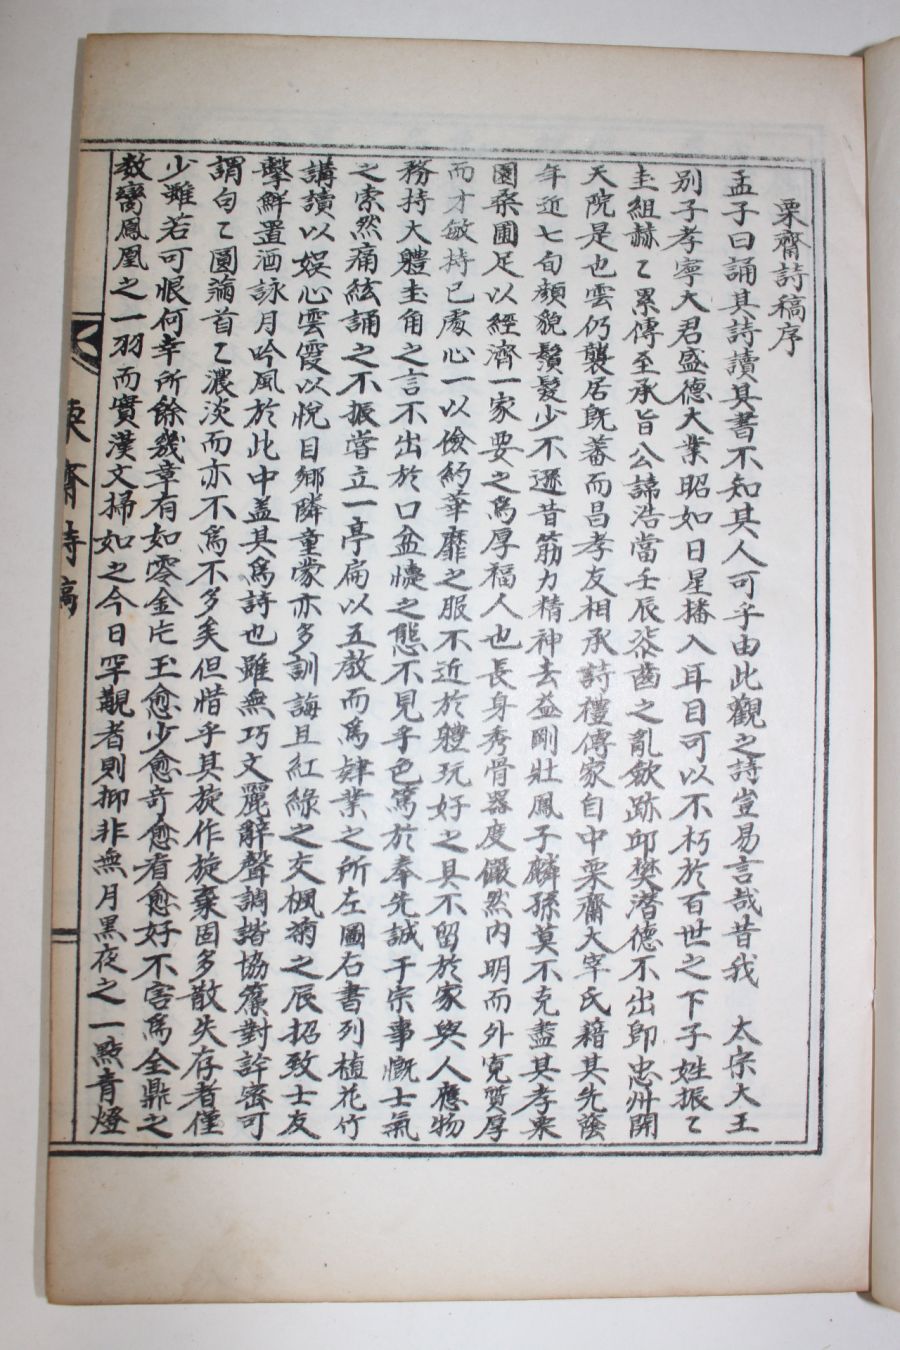 栗齋詩稿序
孟子曰誦其詩讀其書不知其人可乎由此觀之詩豈易言哉昔我 太宗大王
別子孝寧大君盛德大業昭如日星播入耳目可以不朽於百世之下子姓振〻
圭組赫〻累傳至承旨公諱浩當壬辰漆齒之亂斂跡邱樊潛德不出卽忠州開
天院是也雲仍襲居旣蕃而昌孝友相承詩禮傳家自中栗齋大宰氏藉其先蔭
年近七旬顏貌鬚髮少不遜昔筋力精神去益剛壯鳳子麟孫莫不克盡其孝桼
園桑圃足以經濟一家要之爲厚福人也長身秀骨器度儼然內明而外寬質厚
而才敏持已處心一以儉約華靡之服不近於體玩好之具不留於家與人應物
務持大體圭角之言不出於口忿懥之態不見乎色篤於奉先誠于宗事慨士氣
之索然痛絃誦之不振嘗立一亭扁以五教而爲肄業之所左圖右書列植花竹
講讀以娛心雲霞以悅目鄉隣童蒙亦多訓誨且紅綠之交楓菊之辰招致士友
擊鮮置酒詠月吟風於此中盖其爲詩也雖無巧文麗辭聲調諧協簾對詳密可
謂句〻圓滿首〻濃淡而亦不爲不多矣但惜乎其旋作旋棄固多散失存者僅
少雖若可恨何幸所餘幾章有如零金片玉愈少愈奇愈看愈好不害爲全鼎之
一羽而實漢文掃如之今日罕覯者則抑非無月黑夜之一點青燈
栗齋詩稿